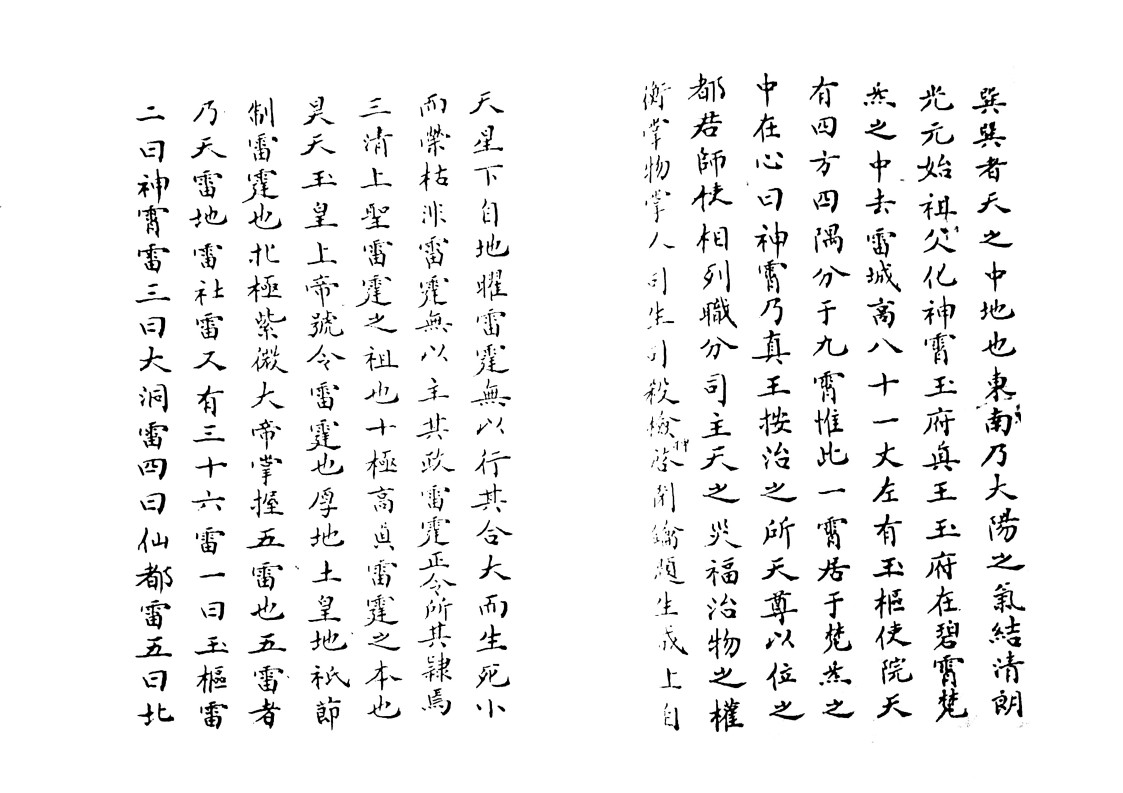 巽巽者天之中地也東南乃大陽之氣結清朗
光元始祖父化神霄玉府真王玉府在碧霄梵
炁之中去雷城高八十一丈左有玉樞使院天
有四方四隅分于九霄惟此一霄居于梵炁之
中在心曰神霄乃真王按治之所天尊以位之
都君師使相列職分司主天之災福治物之權
衡掌物掌人司生司殺檢啓閉鑰題生成上自
天星下自地曜雷霆無以行其合大而生死小
而榮枯非雷霆無以主其政雷霆正令所其隸焉
三清上聖雷霆之祖也十極高真雷霆之本也
昊天玉皇上帝號令雷霆也厚地土皇地祇節
制雷霆也北極紫微大帝掌握五雷也五雷者
乃天雷地雷社雷又有三十六雷一曰玉樞雷
二曰神霄雷三曰大洞雷四曰仙都雷五曰北